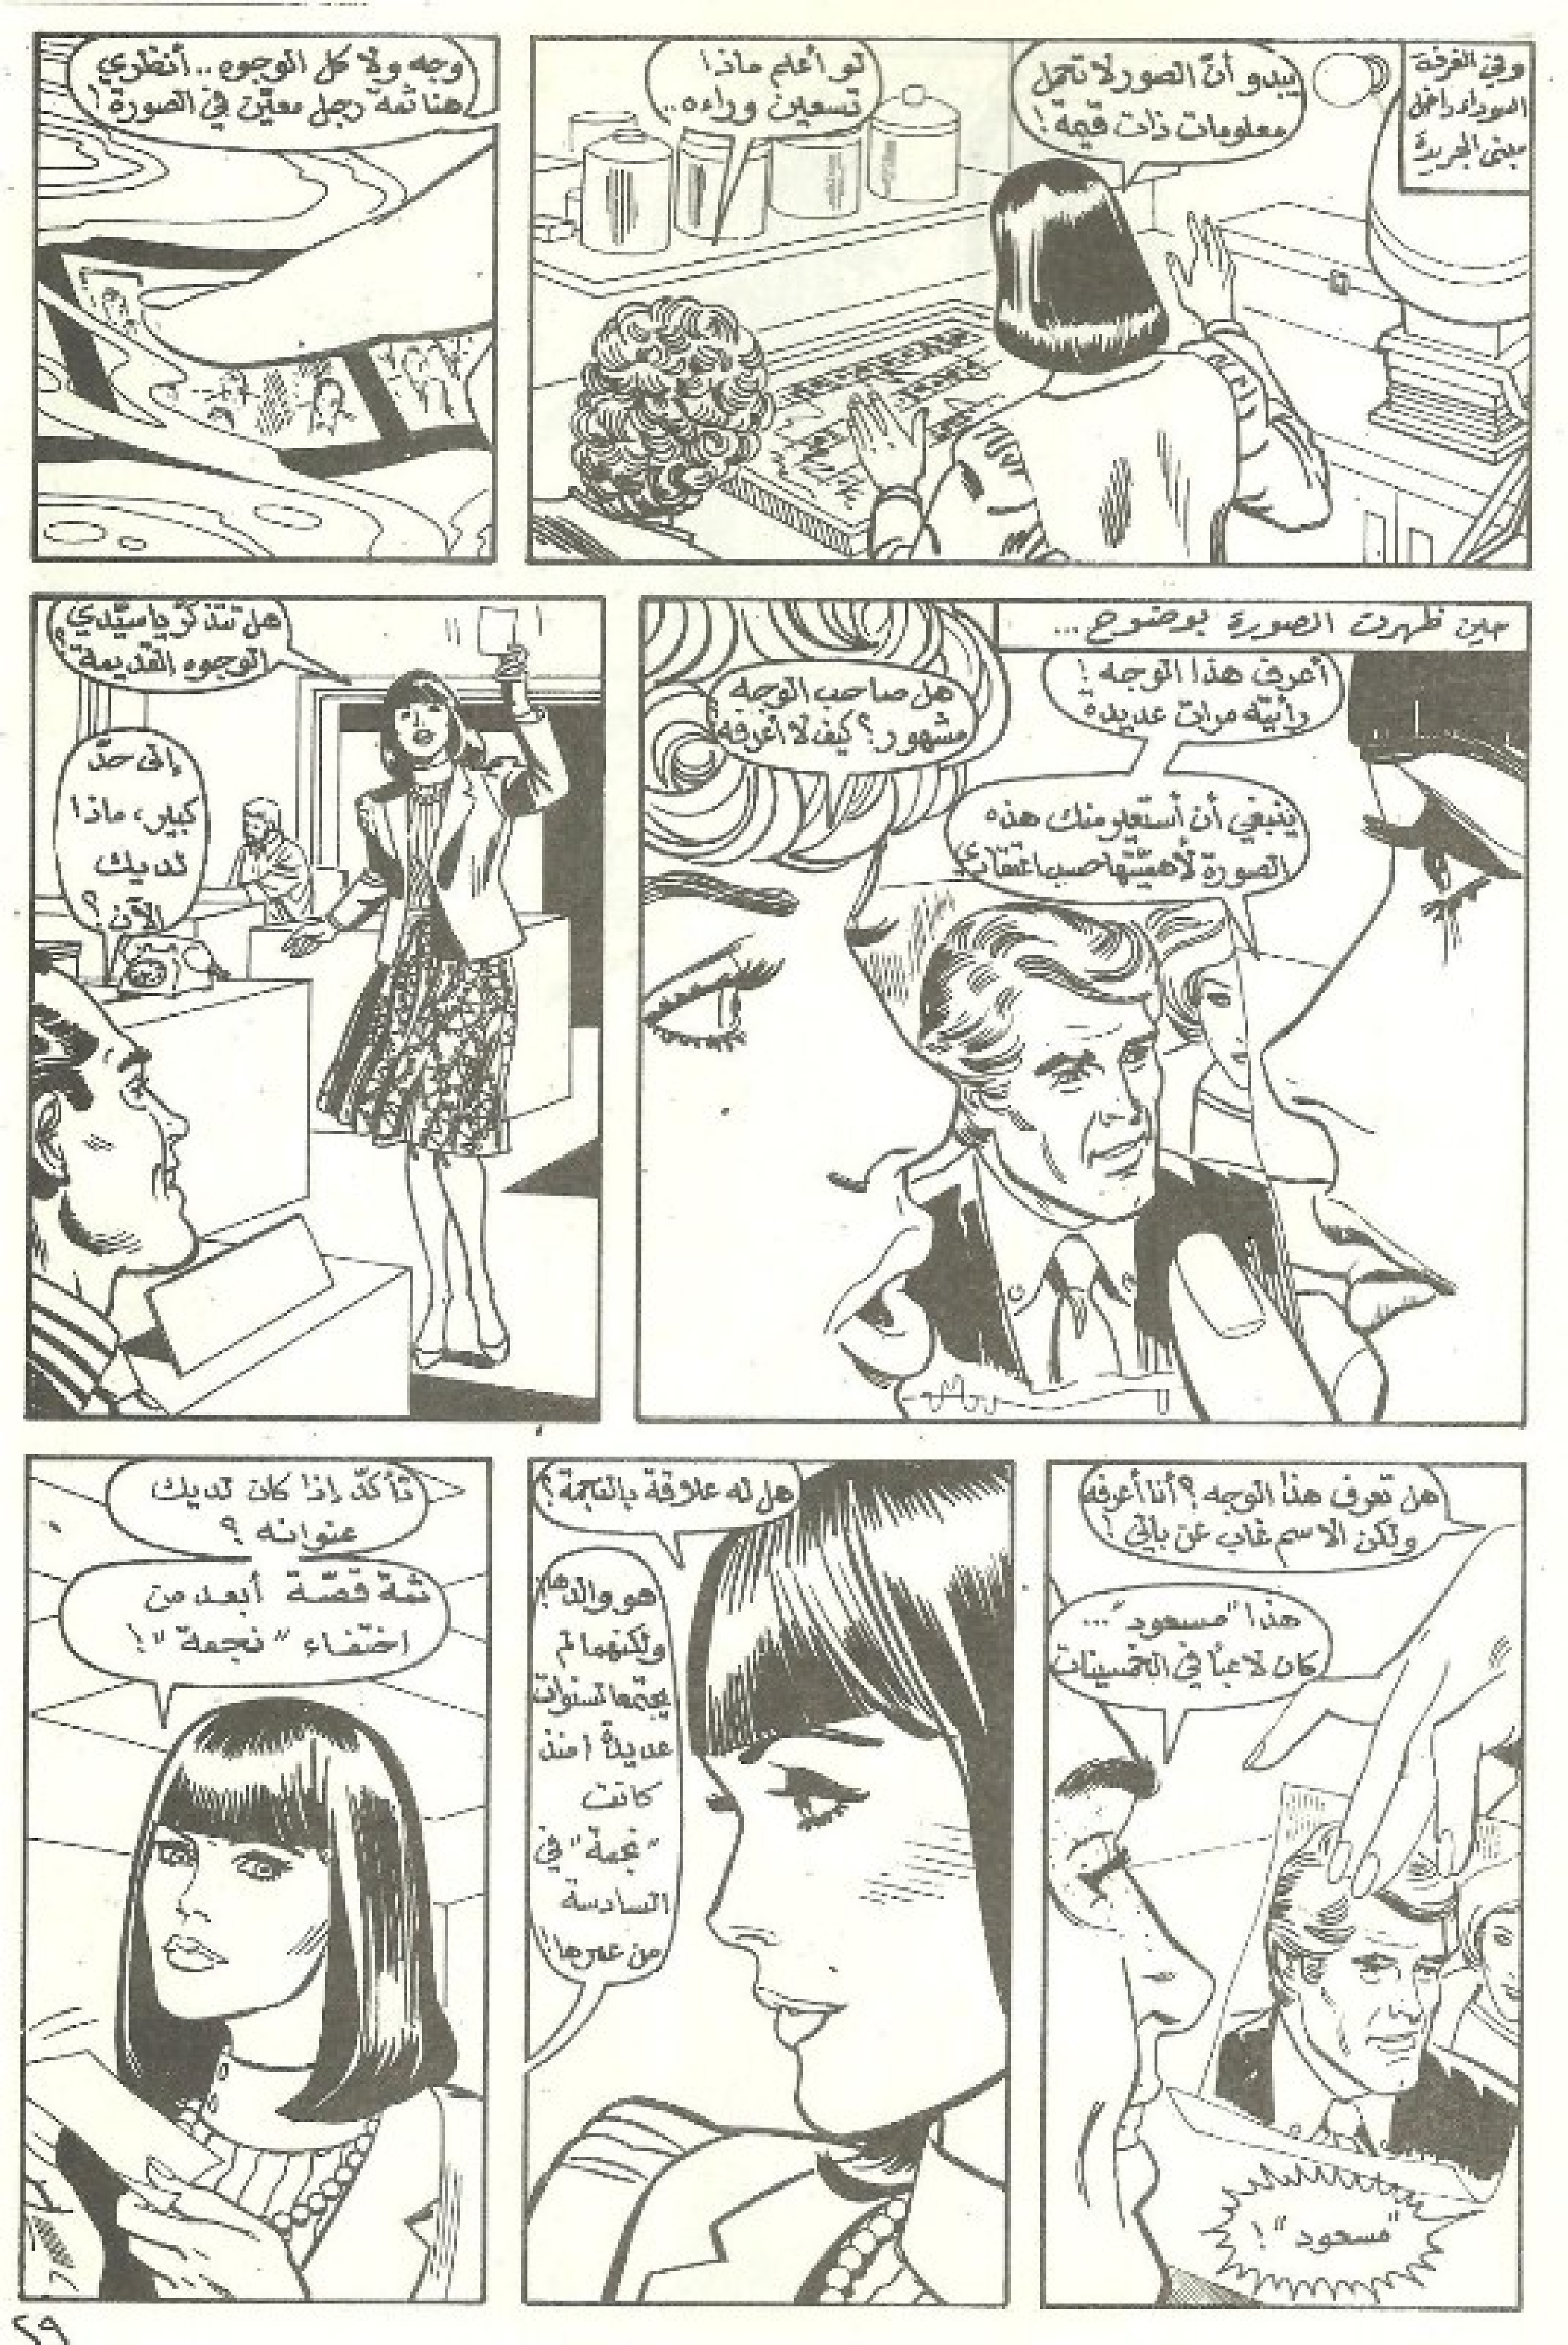 وفي الغرفة
السوداء داخل
مبنى الجريدة
يبدو أنّ الصور لا تحمل
معلومات ذات قيمة!
لو أعلم ماذا
تسعين وراءه..
وجه ولا كل الوجوه.. أنظري
هنا ثمة رجل معيّن في الصورة!
حين ظهرت الصورة بوضوح...
أعرف هذا الوجه!
رأيته مرات عديدة
هل صاحب الوجه
مشهور؟ كيف لا أعرفه؟
ينبغي أن أستعير منك هذه
الصورة لأهميّتها حسب اعتقادي
هل تتذكّر يا سيّدي
الوجوه القديمة؟
إلى حدّ
كبير، ماذا
لديك
الآن؟
هل تعرف هذا الوجه؟ أنا أعرفه
ولكن الاسم غاب عن بالي!
هذا "مسعود"...
كان لاعباً في الخمسينات
"مسعود"!
هل له علاقة بالنجمة؟
هو والدها!
ولكنهما لم
يجتمعا لسنوات
عديدة منذ
كانت
"نجمة" في
السادسة
من عمرها!
تأكّد إذا كان لديك
عنوانه؟
ثمة قصّة أبعد من
اختفاء "نجمة"!
٢٩